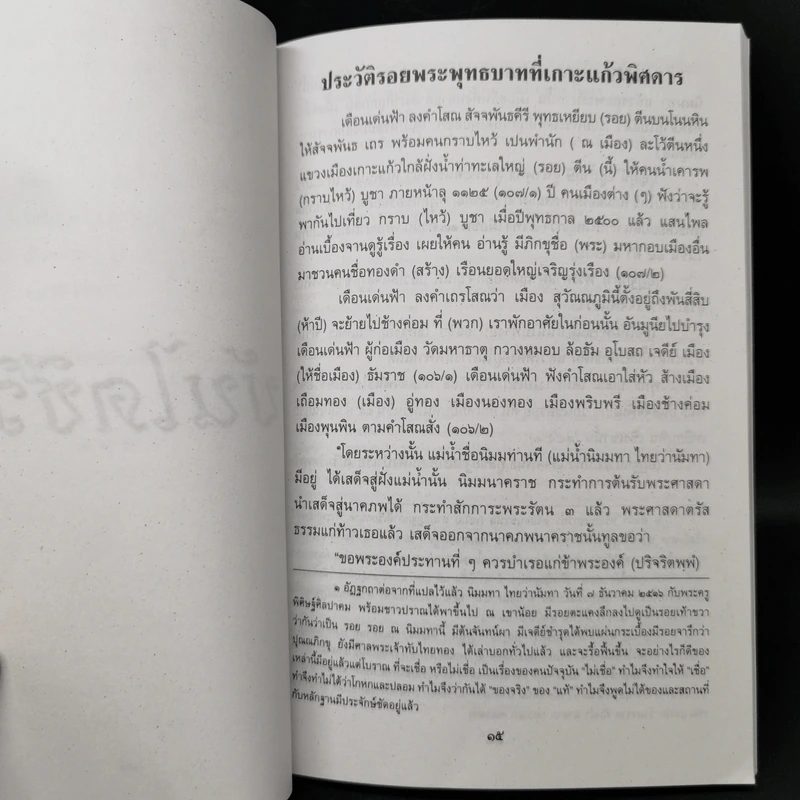 ประวัติรอยพระพุทธบาทที่เกาะแก้วพิศดาร
เดือนเด่นฟ้า ลงคำโสณ สัจจพันธคีรี พุทธเหยียบ (รอย) ตีนบนโนนหิน
ให้สัจจพันธ เถร พร้อมคนกราบไหว้ เปนพำนัก ( ณ เมือง) ละโว้ตีนหนึ่ง
แขวงเมืองเกาะแก้วใกล้ฝั่งน้ำท่าทะเลใหญ่ (รอย) ตีน (นี้) ให้คนน้ำเคารพ
(กราบไหว้) บูชา ภายหน้าลุ ๑๑๒๕ (๑๐๗/๑) ปี คนเมืองต่าง (ๆ) ฟังว่าจะรู้
พากันไปเที่ยว กราบ (ไหว้) บูชา เมื่อปีพุทธกาล ๒๕๐๐ แล้ว แสนไพล
อ่านเบื้องจานดูรู้เรื่อง เผยให้คน อ่านรู้ มีภิกขุชื่อ (พระ) มหากอบเมืองอื่น
มาชวนคนชื่อทองดำ (สร้าง) เรือนยอดใหญ่เจริญรุ่งเรือง (๑๐๗/๒)
เดือนเด่นฟ้า ลงคำเถรโสณว่า เมือง สุวัณณภูมินี้ตั้งอยู่ถึงพันสี่สิบ
(ห้าปี) จะย้ายไปช้างค่อม ที่ (พวก) เราพักอาศัยในก่อนนั้น อันมูนียไปบำรุง
เดือนเด่นฟ้า ผู้ก่อเมือง วัดมหาธาตุ กวางหมอบ ล้อธัม อุโบสถ เจดีย์ เมือง
(ให้ชื่อเมือง) ธัมราช (๑๐๖/๑) เดือนเด่นฟ้า ฟังคำโสณเอาใส่หัว ส้างเมือง
เถือมทอง (เมือง) อู่ทอง เมืองนองทอง เมืองพริบพรี เมืองช้างค่อม
เมืองพุนพิน ตามคำโสณสั่ง (๑๐๖/๒)
"โดยระหว่างนั้น แม่น้ำชื่อนิมมท่านที (แม่น้ำนิมมทา ไทยว่านัมทา)
มีอยู่ ได้เสด็จสู่ฝั่งแม่น้ำนั้น นิมมนาคราช กระทำการต้นรับพระศาสดา
นำเสด็จสู่นาคภพได้ กระทำสักการะพระรัตน ๓ แล้ว พระศาสดาตรัส
ธรรมแก่ท้าวเธอแล้ว เสด็จออกจากนาคภพนาคราชนั้นทูลขอว่า
"ขอพระองค์ประทานที่ ๆ ควรบำเรอแก่ข้าพระองค์ (ปริจริตพฺพํ)
๑ อัฏฐกถาต่อจากที่แปลไว้แล้ว นิมมทา ไทยว่านัมทา วันที่ ๗ ธันวาคม ๒๕๑๖ กับพระครู
พิศิษฐ์ศิลปาคม พร้อมชาวปราณได้พาขึ้นไป ณ เขาน้อย มีรอยตะแคงลึกลงไปดูเป็นรอยเท้าขวา
ว่ากันว่าเป็น รอย รอย ณ นิมมทานี้ มีต้นจันทน์ผา มีเจดีย์ชำรุดได้พบแผ่นกระเบื้องมีรอยจารึกว่า
ปุณณภิกขุ ยังมีศาลพระเจ้าทับไทยทอง ได้เล่าบอกทั่วไปแล้ว และจะรื้อฟื้นขึ้น จะอย่างไรก็ดีของ
เหล่านี้มีอยู่แล้วแต่โบราณ ที่จะเชื่อ หรือไม่เชื่อ เป็นเรื่องของคนปัจจุบัน "ไม่เชื่อ" ทำไมจึงทำใจให้ "เชื่อ"
ทำจึงทำไม่ได้ว่าโกหกและปลอม ทำไมจึงว่ากันได้ "ของจริง" ของ "แท้" ทำไมจึงพูดไม่ได้ของและสถานที่
กับหลักฐานมีประจักษ์ชัดอยู่แล้ว
๑๕